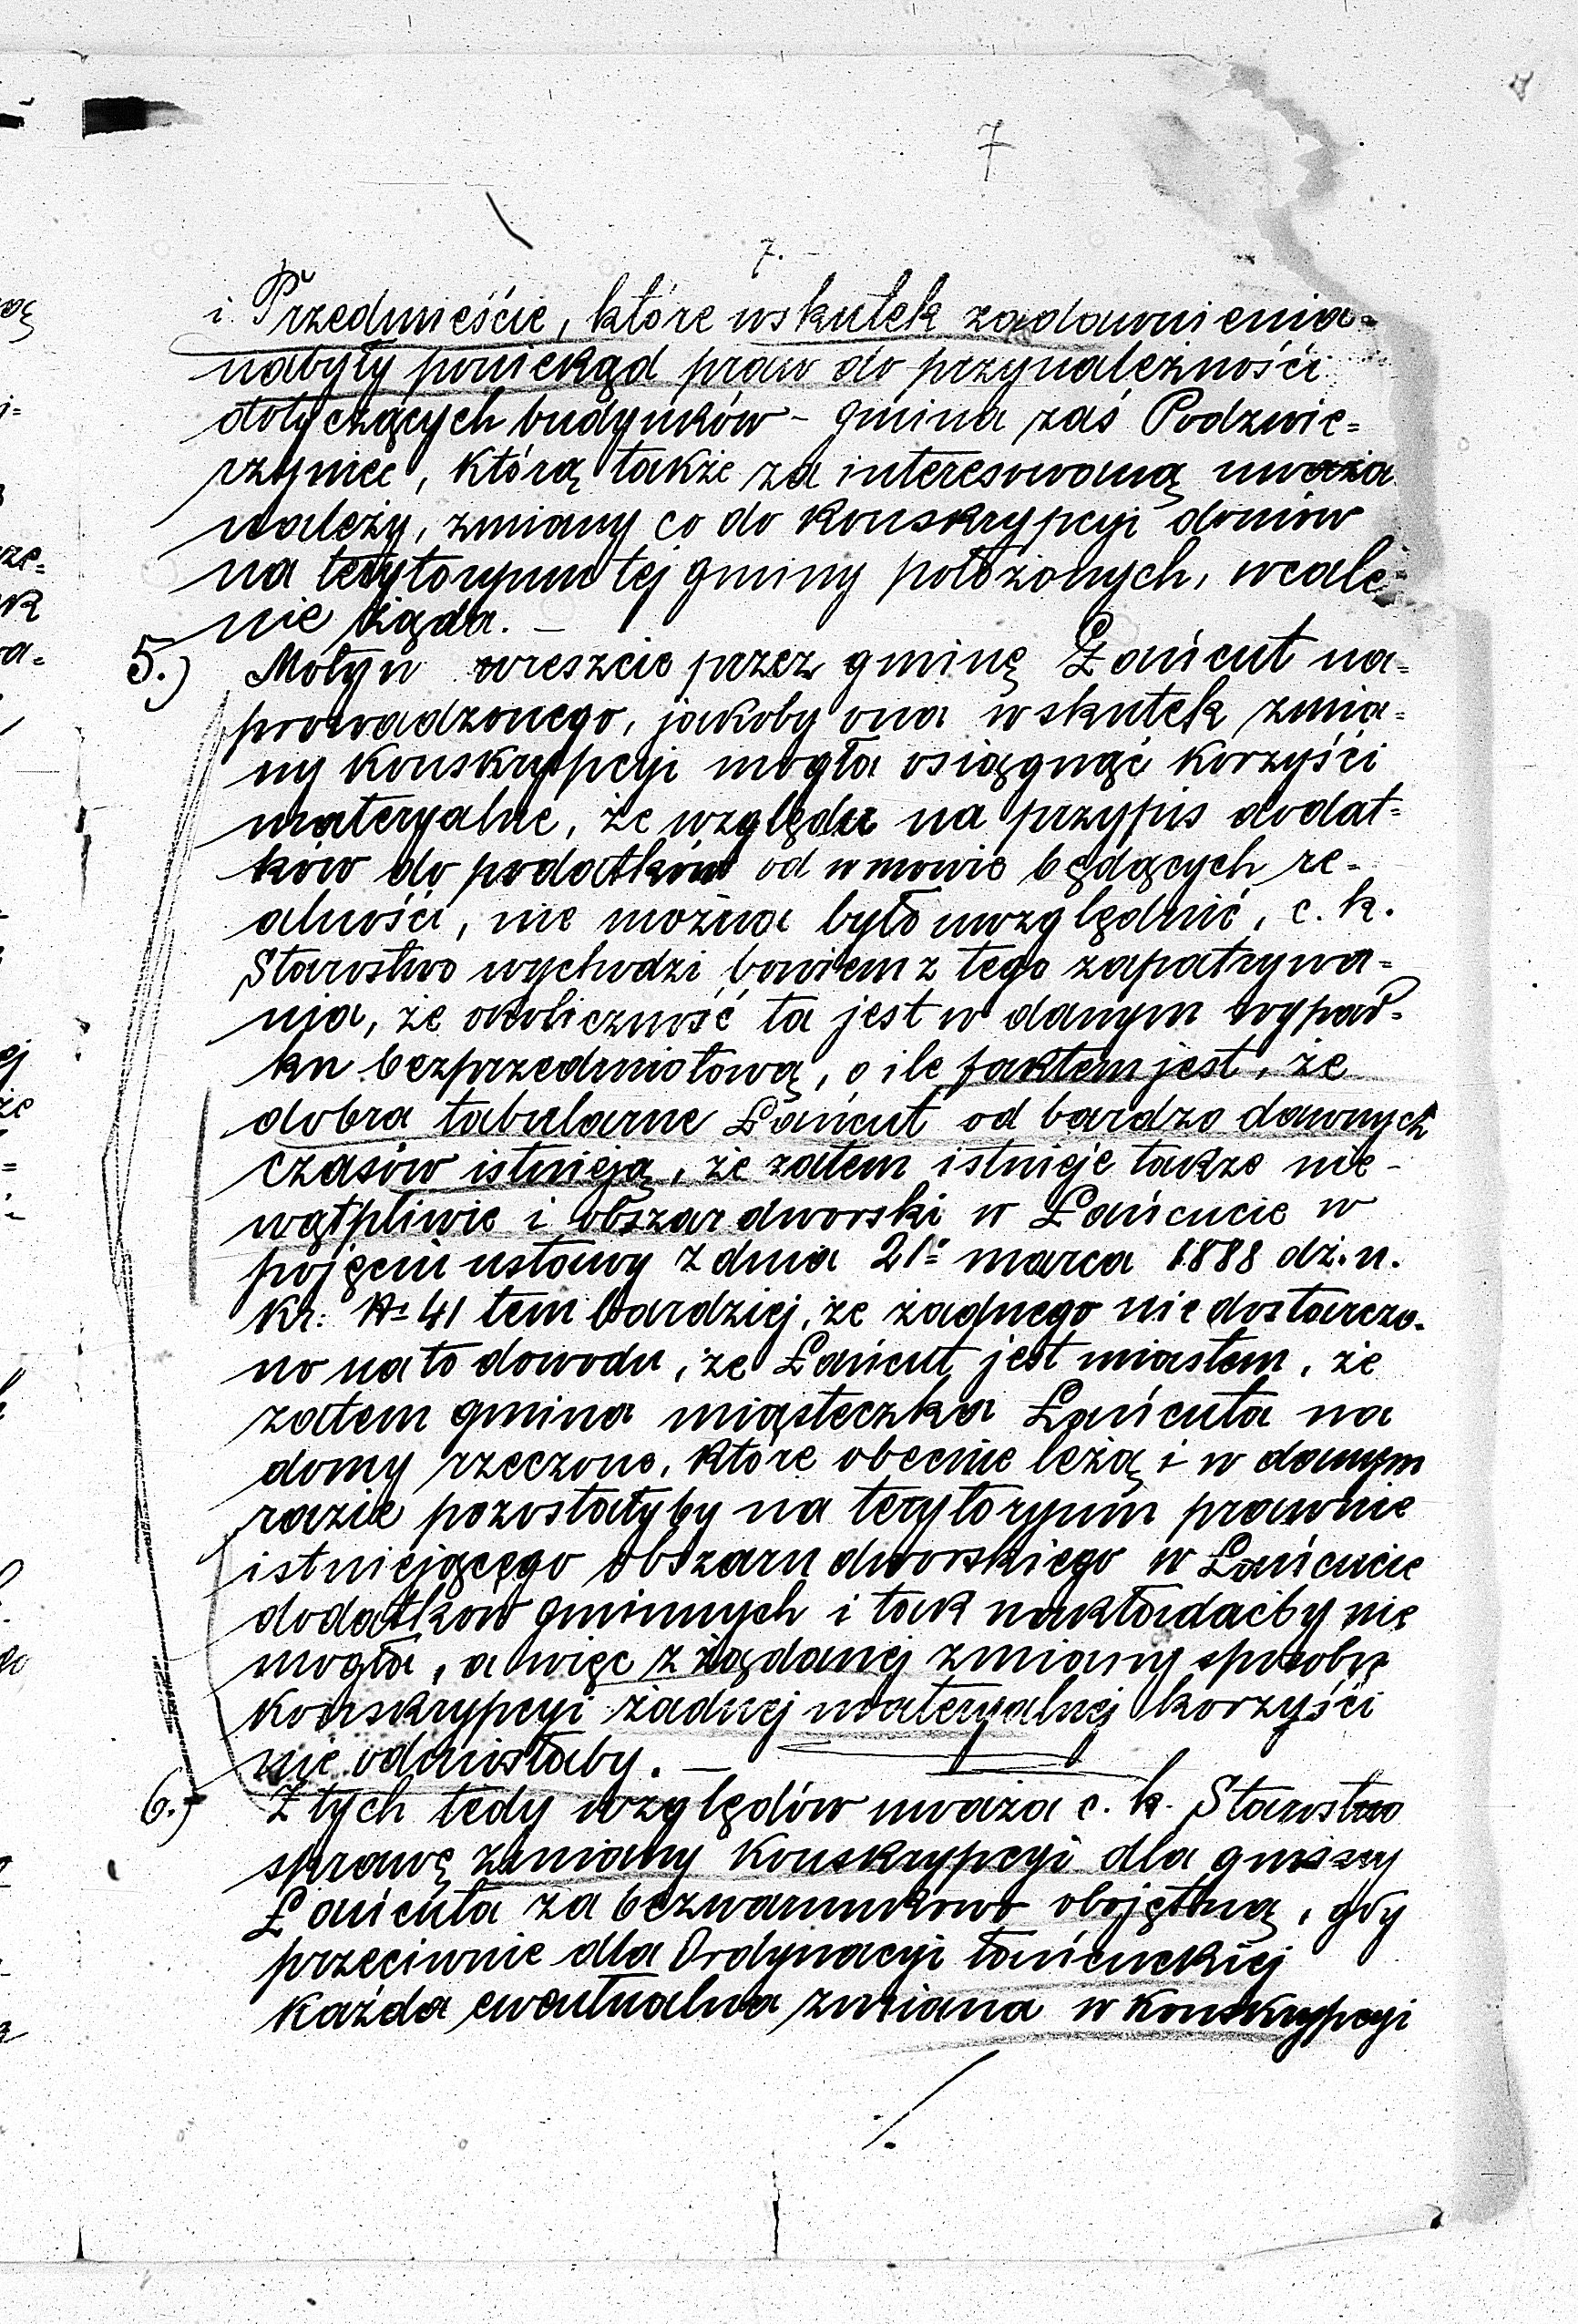 7
7.
i Przedmieście, które wskutek zadawnienia
nabyły poniekąd praw do przynależności
dotyczących budynków - gmina zaś Podzwie=
rzyniec, którą także za interesowaną uważa
należy, zmiany co do konskrypcyi domów
na terytoryum tej gminy położonych, wcale
nie żąda. —
5.) Motyw wreszcie przez gminę Łańcut na=
prowadzonego, jakoby ona wskutek zmia=
ny konskrypcyi mogła osiągnąć korzyści
materyalne, ze względu na przypis dodat=
ków do podatków od w mowie będących re=
alności, nie można było uwzględnić, c. k.
Starostwo wychodzi bowiem z tego zapatrywa=
nia, że okoliczność ta jest w danym wypad=
ku bezprzedmiotową, o ile faktem jest, że
dobra tabularne Łańcut od bardzo dawnych
czasów istnieją, że zatem istnieje także nie-
wątpliwie i obszar dworski w Łańcucie w
pojęciu ustawy z dnia 21º marca 1888 dź. u.
kr: № 41 tem bardziej, że żadnego nie dostarczo-
no na to dowodu, że Łańcut jest miastem, że
zatem gmina miasteczka Łańcuta na
domy rzeczone, które obecnie leżą i w danym
razie pozostałyby na terytoryum prawnie
istniejącego obszaru dworskiego w Łańcucie
dodatków gminnych i tak nakładaćby nie
mogła, a więc z żądanej zmiany sposobu
konskrypcyi żadnej materyalnej korzyści
nie odniosłaby. —
6.) Z tych tedy względów uważa c. k. Starostwo
sprawę zmiany konskrypcyi dla gminy
Łańcuta za bezwarunkowo obojętną, gdy
przeciwnie dla Ordynacyi łańcuckiej
każda ewentualna zmiana w konskrypcyi
./.